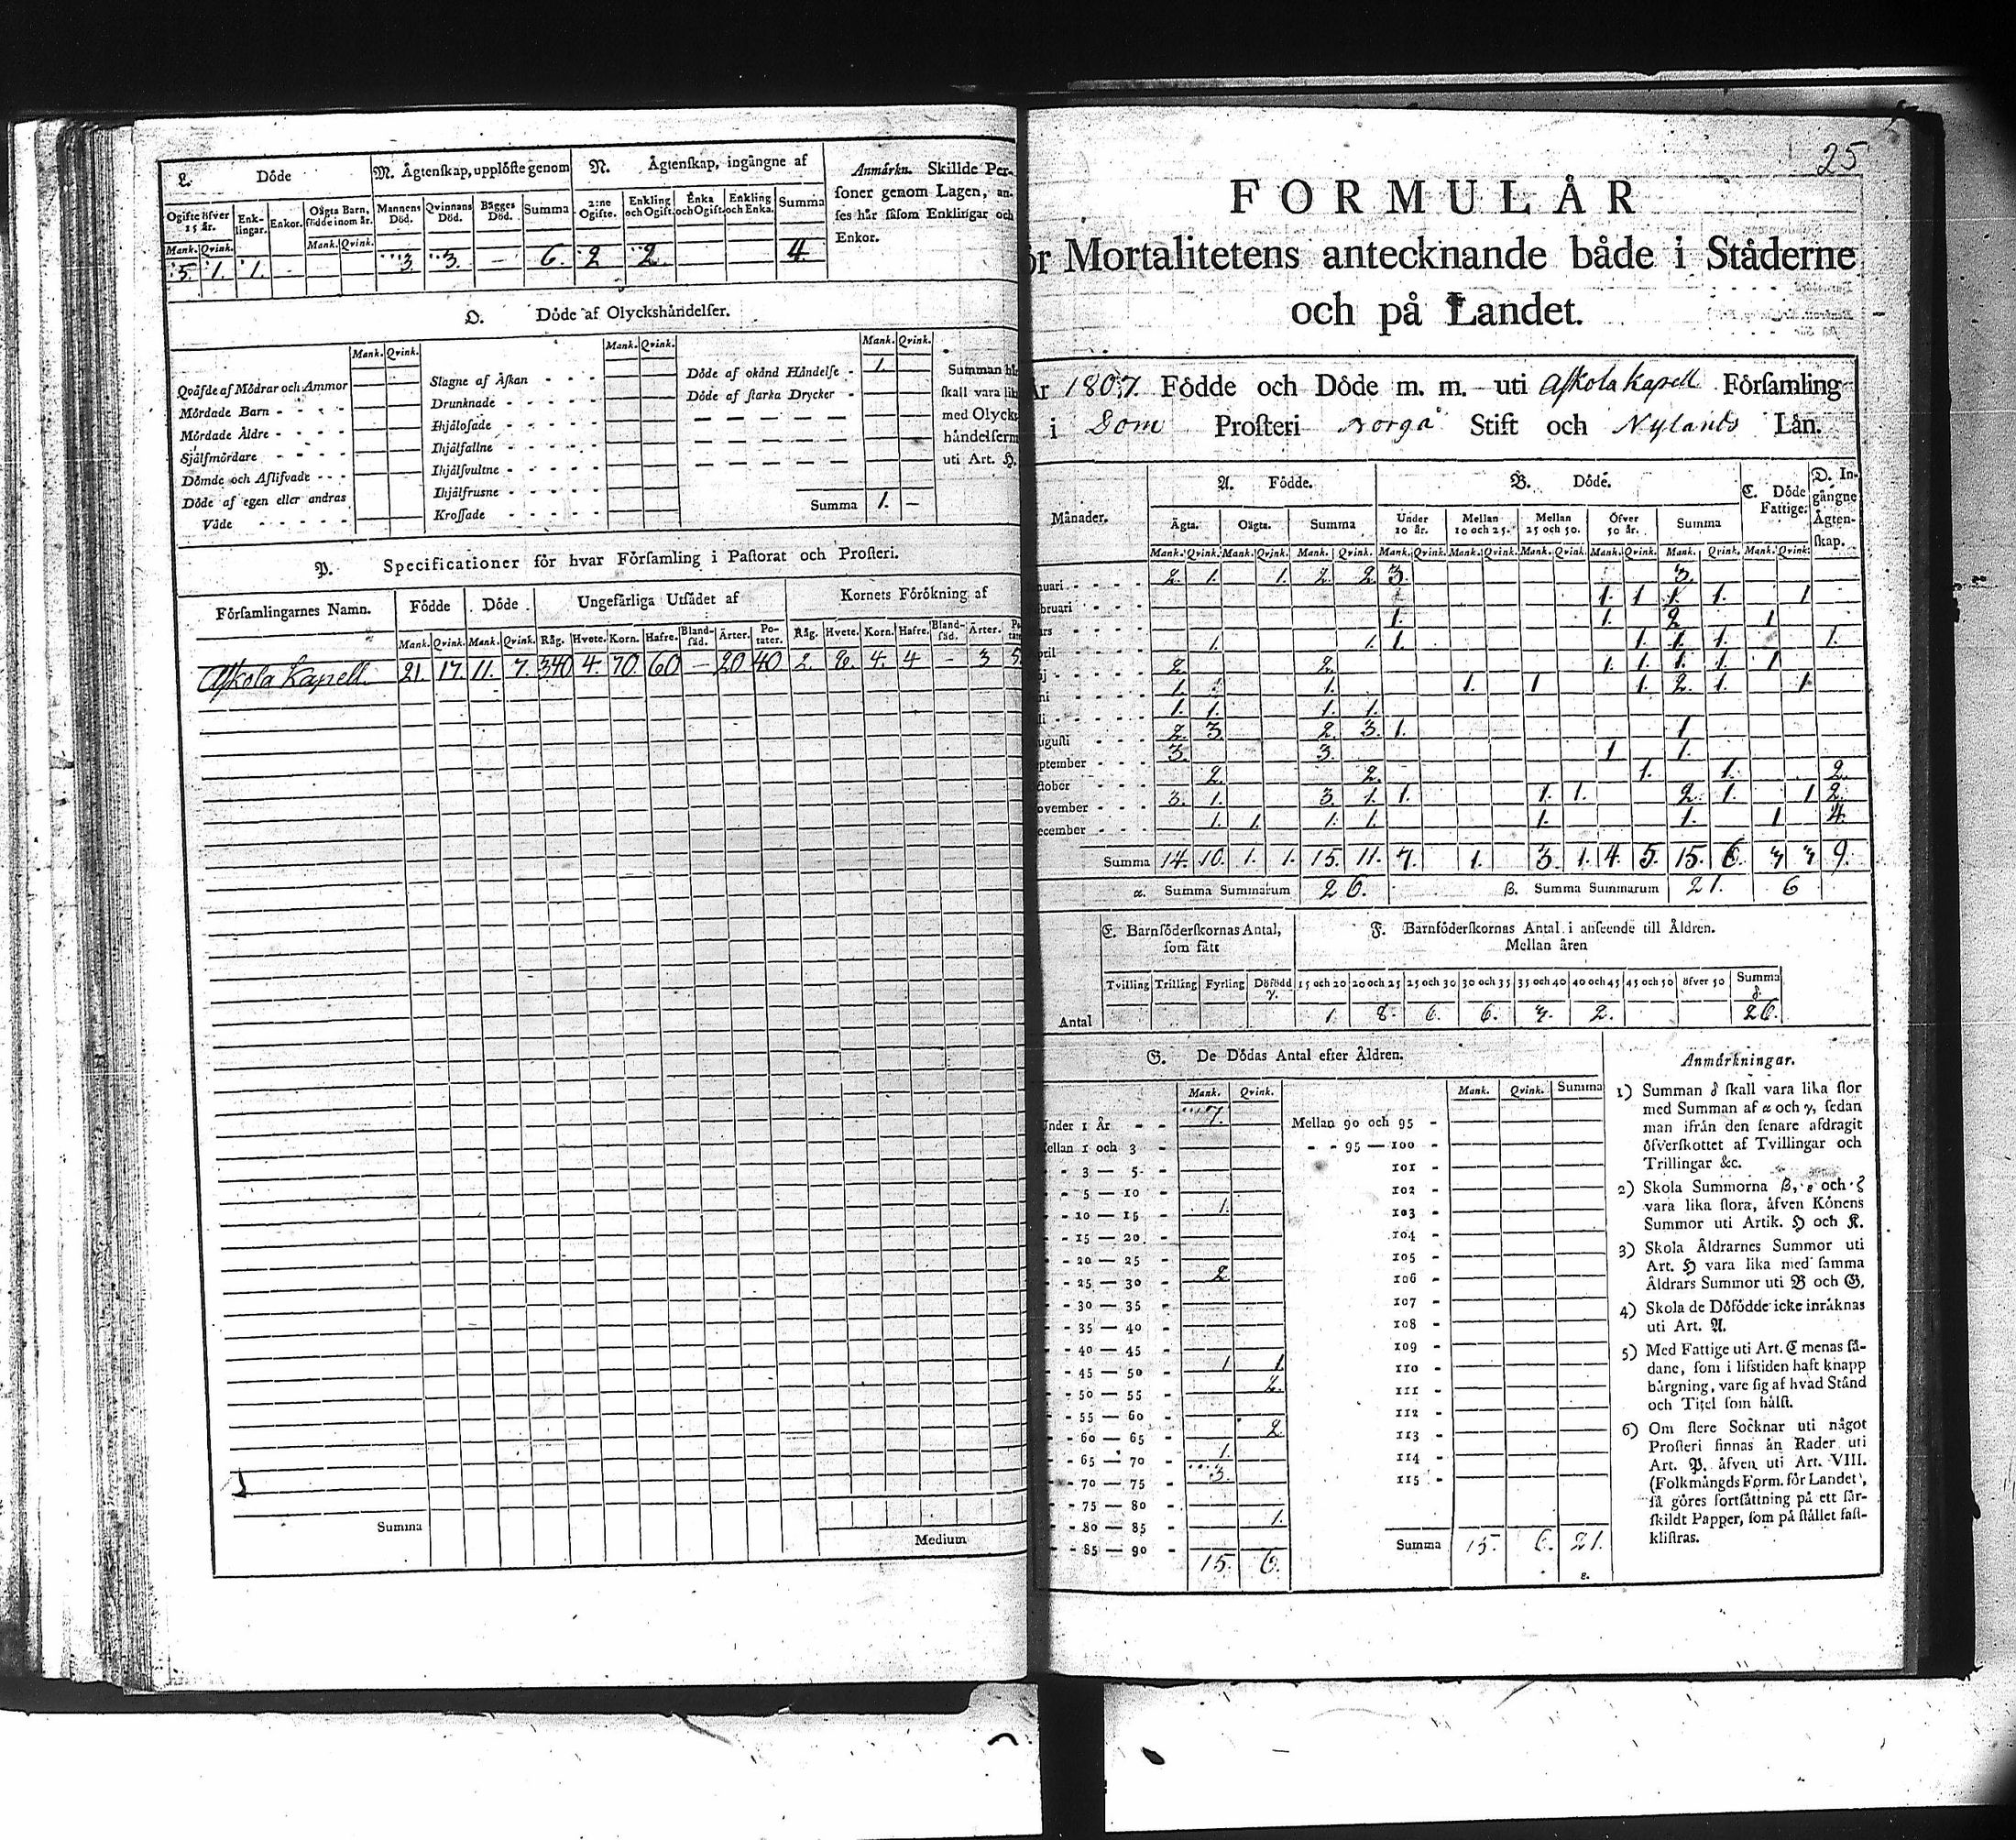 L. Döde
M. Ägtenskap, upplöste genom
N. Ägtenskap, ingångne af
Anmärkn. Skillde Per-
soner genom Lagen, an-
ses här såsom Enklingar och
Enkor.
Ogifte öfver 15 år. Enk-lingar. Enkor. Oägta Barn, födde inom år. Mannens Död. Qvinnans Död. Bägges Död. Summa 2:ne Ogifte. Enkling och Ogift. Enka och Ogift. Enkling och Enka. Summa
Mank. Qvink. Mank. Qvink.
5. 1. 1. - 3. 3. - 6. 2 2. 4
O. Döde af Olyckshändelser.
Mank. Qvink. Mank. Qvink. Mank. Qvink.
Qväfde af Mödrar och Ammor Slagne af Åskan - - - Döde af okänd Händelse - 1.
Mördade Barn - - - - Drunknade - - - - Döde af starka Drycker -
Mördade Äldre - - - - Ihjälosade - - - -
Själfmördare - - - - Ihjälfallne - - - -
Dömde och Aflifvade - - - Ihjälsvultne - - - -
Döde af egen eller andras Ihjälfrusne - - - - -
Våde - - - - - Krossade - - - - Summa 1. -
Summan här
skall vara lik
med Olycks-
händelserne
uti Art. H.
P. Specificationer för hvar Församling i Pastorat och Prosteri.
Församlingarnes Namn. Födde Döde Ungefärliga Utsädet af Kornets Förökning af
Mank. Qvink. Mank. Qvink. Råg. Hvete. Korn. Hafre. Bland-säd. Ärter. Po-tater. Råg. Hvete. Korn. Hafre. Bland-säd. Ärter.
Askola Kapell. 21. 17. 11. 7. 340 4. 70. 60 - 20 40 2. 2. 4. 4 - 3 5.
Summa Medium
25
FORMULÄR
ör Mortalitetens antecknande både i Städerne
och på Landet.
År 1807. Födde och Döde m. m. uti Askola Kapell Församling
i Dom Prosteri Borgå Stift och Nylands Län.
Månader. A. Födde. B. Döde. C. Döde Fattige. D. In-gångne Ägten-skap.
Ägta. Oägta. Summa Under 10 år. Mellan 10 och 25. Mellan 25 och 50. Öfver 50 år. Summa
Mank. Qvink. Mank. Qvink. Mank. Qvink. Mank. Qvink. Mank. Qvink. Mank. Qvink. Mank. Qvink. Mank. Qvink. Mank. Qvink.
nuari - - - - 2. 1. 1. 2. 2 3. 3.
bruari - - - - 1. 1 1. 1. 1
ars - - - - 1. 1. 2 1
pril - - - - 1. 1. 1. 1. 1. 1. 1.
aj - - - - 2 2. 1. 1. 1. 1. 1
ni - - - - 1. 1. 1. 1 1. 2. 1. 1
li - - - - 1. 1. 1. 1.
ugusti - - - 2 3. 2. 3. 1. 1
ptember - - - 3. 3. 1 1.
ktober - - - 2. 2. 1. 1. 2.
ovember - - - 3. 1. 3. 1. 1. 1. 1. 2. 1. 1 2.
ecember - - - 1. 1. 1. 1. 1. 1. 1 4
Summa 14. 10. 1. 1. 15. 11. 7. 1. 3. 1. 4. 5. 15. 6. 3 3 9.
α. Summa Summarum 26. β. Summa Summarum 21. 6
E. Barnföderskornas Antal, som fått
F. Barnföderskornas Antal i anseende till Åldren.
Mellan åren
Tvilling Trilling Fyrling Döfödd γ. 15 och 20 20 och 25 25 och 30 30 och 35 35 och 40 40 och 45 45 och 50 öfver 50 Summa δ.
Antal 1. 8. 6. 6. 3. 2. 26.
G. De Dödas Antal efter Åldren.
Mank. Qvink. Mank. Qvink. Summa
Under 1 År - - 7. Mellan 90 och 95 -
Mellan 1 och 3 - - - 95 — 100 -
- - 3 — 5 - 101 -
- - 5 — 10 - 102 -
- - 10 — 15 - 1. 103 -
- - 15 — 20 - 104 -
- - 20 — 25 - 105 -
- - 25 — 30 - 2 106 -
- - 30 — 35 - 107 -
- - 35 — 40 - 108 -
- - 40 — 45 - 109 -
- - 45 — 50 - 1 1. 110 -
- - 50 — 55 - 2. 111 -
- - 55 — 60 - 112 -
- - 60 — 65 - 2 113 -
- - 65 — 70 - 1. 114 -
- - 70 — 75 - 3. 115 -
- - 75 — 80 -
- - 80 — 85 - 1.
- - 85 — 90 - Summa 15. 6. 21.
15. 6. ε.
Anmärkningar.
1) Summan δ skall vara lika stor
med Summan af α och γ, sedan
man ifrån den senare afdragit
öfverskottet af Tvillingar och
Trillingar &c.
2) Skola Summorna β, ε och ζ
vara lika stora, äfven Könens
Summor uti Artik. H och K.
3) Skola Åldrarnes Summor uti
Art. H vara lika med samma
Åldrars Summor uti B och G.
4) Skola de Döfödde icke inräknas
uti Art. A.
5) Med Fattige uti Art. C menas så-
dane, som i lifstiden haft knapp
bärgning, vare sig af hvad Stånd
och Titel som hälst.
6) Om flere Socknar uti något
Prosteri finnas än Rader uti
Art. P. äfven uti Art. VIII.
(Folkmängds Form. för Landet),
så göres fortsättning på ett sär-
skildt Papper, som på stället fast-
klistras.